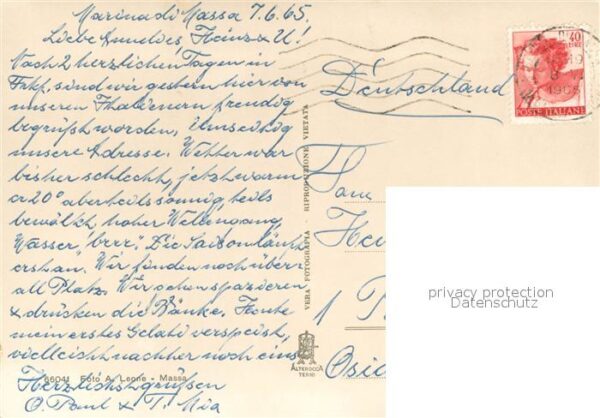 Marina di Massa 7.6.65.
Liebe Annelies, Heinz & U!
Nach 2 herzlichen Tagen in
Frkf. sind wir gestern hier von
unseren Italienern freudig
begrüßt worden, Umseitig
unsere Adresse. Wetter war
bisher schlecht, jetzt warm
ca 20° aber teils sonnig, teils
bewölkt, hoher Wellengang,
Wasser "brrr". Die Saison läuft
erst an. Wir finden noch über-
all Platz. Wir schon spazieren
& drücken die Bänke, Heute
mein erstes Gelati verspeist,
vielleicht nachher noch eins
Herzlichst grüßen
O. Paul & T. Mia
66041 Foto A. Leone - Massa
VERA FOTOGRAFIA - RIPRODUZIONE VIETATA
ALTEROCCA
TERNI
Deutschland
40
POSTE ITALIANE
19
1965
Fam
Hei
1
privacy protection
Datenschutz